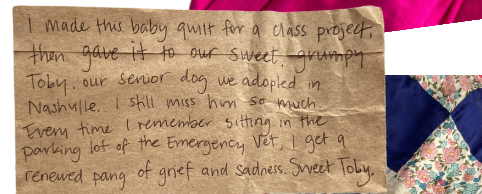 I made this baby quilt for a class project,
then gave it to our sweet, grumpy
Toby, our senior dog we adopted in
Nashville. I still miss him so much.
Every time I remember sitting in the
parking lot of the Emergency Vet, I get a
renewed pang of grief and sadness. Sweet Toby.